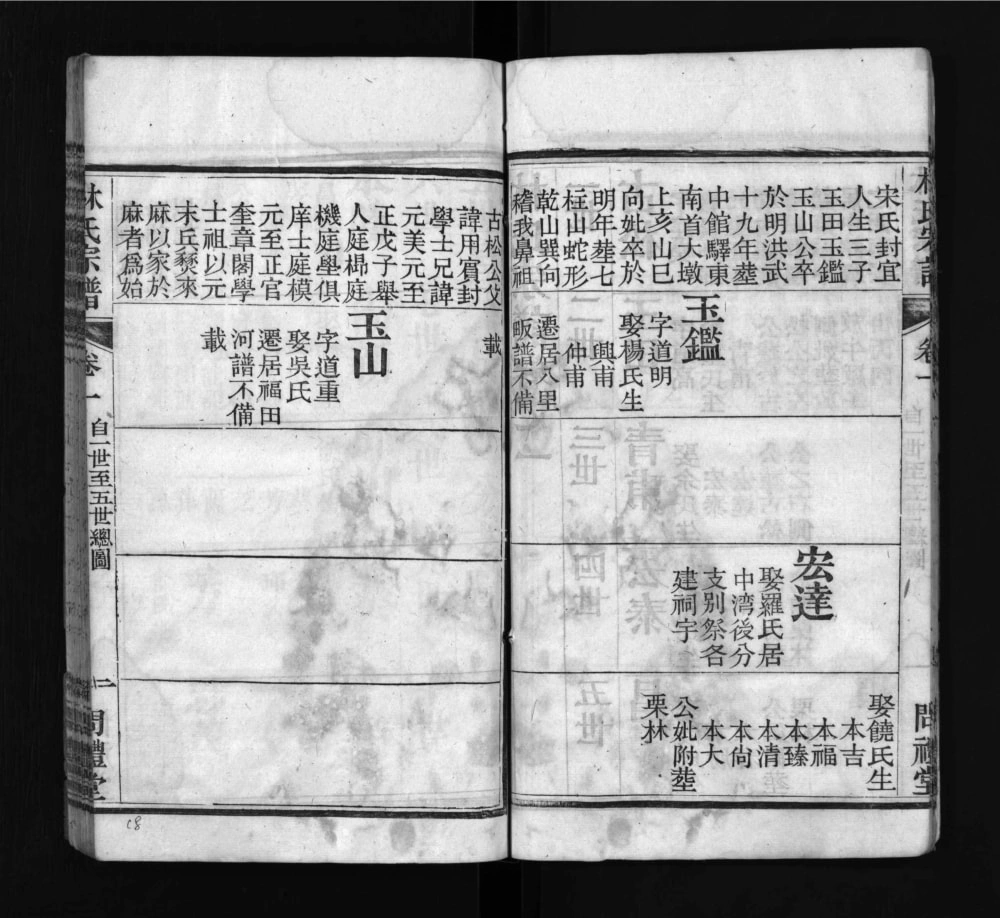 宋氏封宜
人生三子
玉田玉鑑
玉山公卒
於明洪武
十九年塟
中館驛東
南首大墩
上亥山巳
向妣卒於
明年塟七
枉山蛇形
乾山巽向
稽我鼻祖
玉鑑
字道明
娶楊氏生
興甫
仲甫
遷居八里
畈譜不備
宏達
娶羅氏居
中湾後分
支別祭各
建祠宇
娶饒氏生
本吉
本福
本臻
本清
本尙
本大
公妣附塟
栗林
古松公父
諱用賓封
學士兄諱
元美元至
正戊子舉
人庭楊庭
機庭壆俱
庠士庭模
元至正官
奎章閣學
士祖以元
末丘燹來
麻以家於
麻者爲始
載
玉山
字道重
娶吳氏
遷居福田
河譜不備
載
林氏宗譜
卷一
自一世至五世總圖
一
問禮堂
18